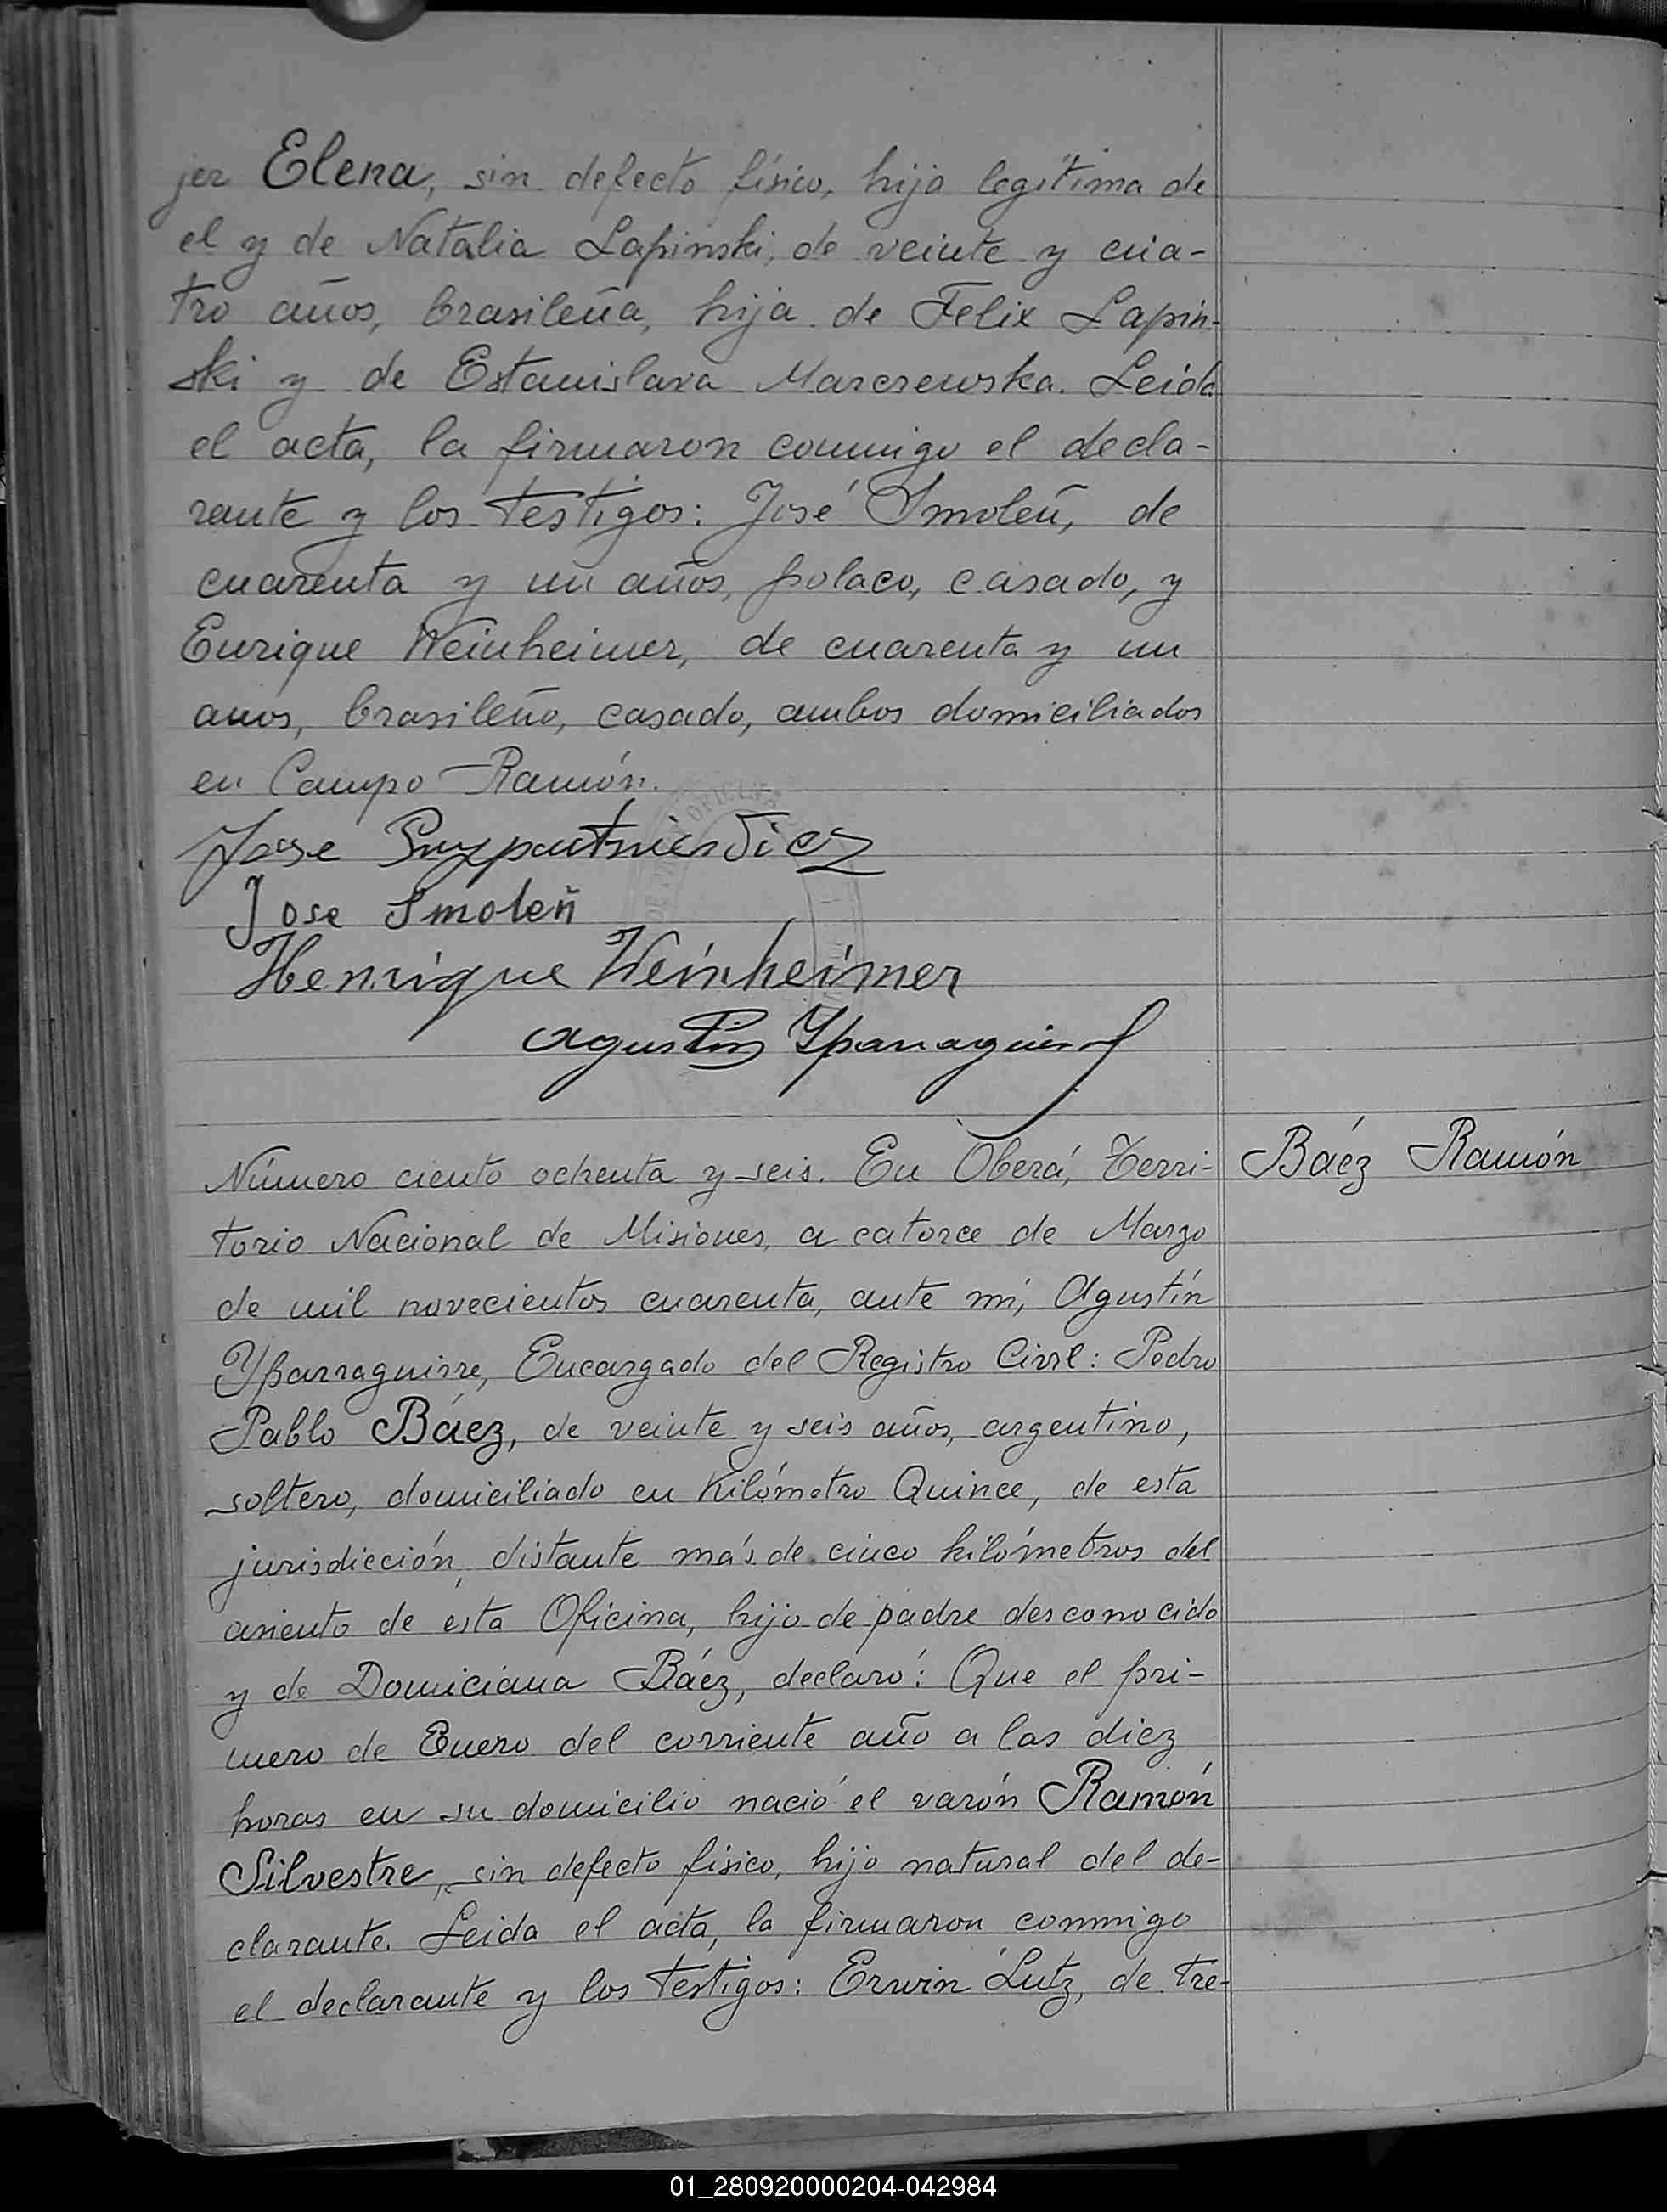 jer Elena, sin defecto físico, hija legítima de
el y de Natalia Lapinski, de veinte y cua-
tro años, brasileña, hija de Felix Lapin-
ski y de Estanislava Marczewska. Leida
el acta, la firmaron conmigo el decla-
rante y los testigos: José Smoleñ, de
cuarenta y un años, polaco, casado, y
Enrique Weinheimer, de cuarenta y un
anos, brasileño, casado, ambos domiciliados
en Campo Ramón.
Jose
Jose Smoleñ
Henrique Weinheimer
Agustin Yparraguirre
Número ciento ochenta y seis. En Oberá, Terri-
Báez Ramón
torio Nacional de Misiones, a catorce de Marzo
de mil novecientos cuarenta, ante mí, Agustín
Yparraguirre, Encargado del Registro Civil: Pedro
Pablo Báez, de veinte y seis años, argentino,
soltero, domiciliado en Kilómetro Quince, de esta
jurisdicción, distante más de cinco kilómetros del
asiento de esta Oficina, hijo de padre desconocido
y de Domiciana Báez, declaró: Que el pri-
mero de Enero del corriente año a las diez
horas en su domicilio nació el varón Ramón
Silvestre, sin defecto físico, hijo natural del de-
clarante. Leida el acta, la firmaron conmigo
el declarante y los testigos: Erwin Lutz, de tre-
01_280920000204-042984